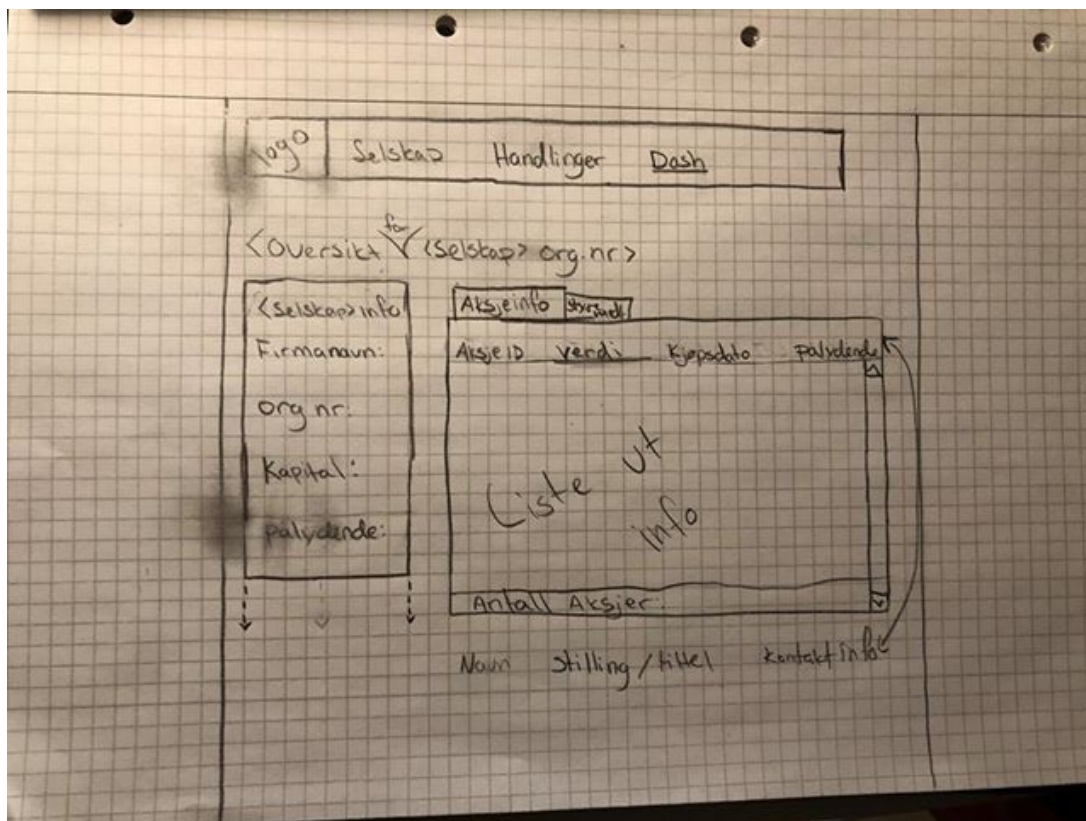 Logo Selskap Handlinger Dash
for
<Oversikt V <Selskap> org.nr>
<Selskap> info
Firmanavn:
org nr:
Kapital:
pålydende:
Aksjeinfo
AksjeID verdi Kjøpsdato Pålydende
Liste ut
info
Antall Aksjer:
Navn Stilling/tittel Kontakt info